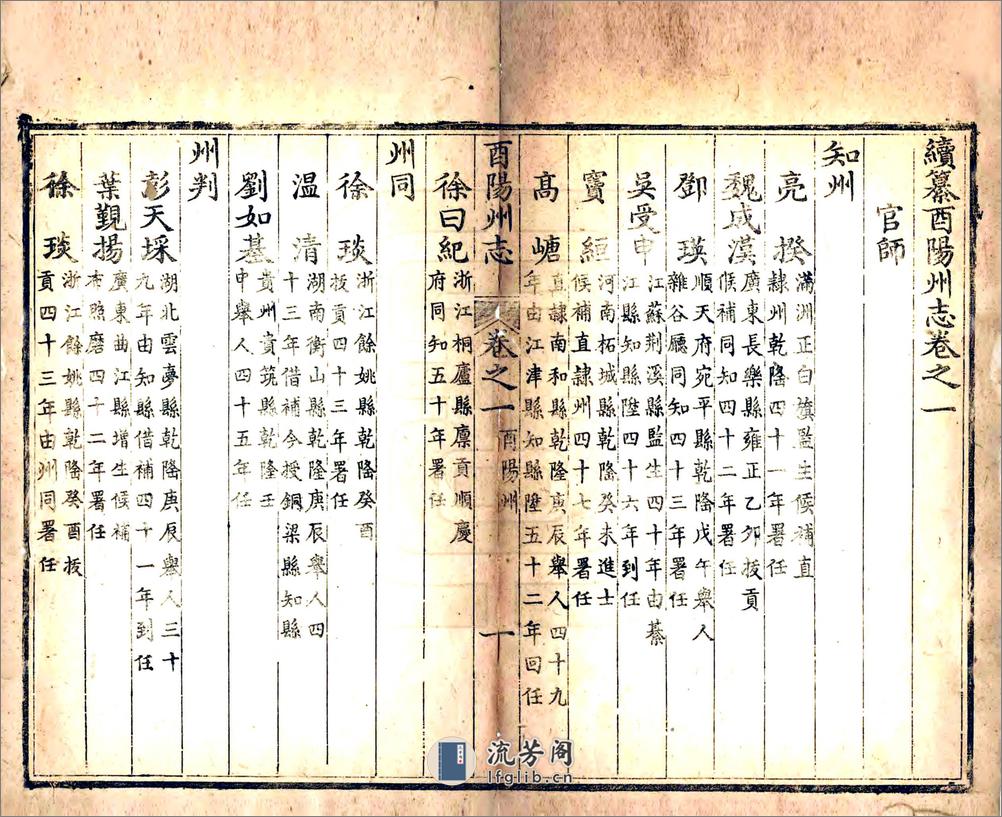 續纂酉陽州志卷之一
官師
知州
亮揆 滿洲正白旗監生候補直
隸州乾隆四十一年署任
魏成漢 廣東長樂縣雍正乙卯拔貢
候補同知四十二年署任
鄧瑛 順天府宛平縣乾隆戊午舉人
雜谷廳同知四十三年署任
吳受申 江蘇荆溪縣監生四十年由綦
江縣知縣陞四十六年到任
竇絙 河南柘城縣乾隆癸未進士
候補直隸州四十七年署任
高㟷 直隸南和縣乾隆庚辰舉人四十九
年由江津縣知縣陞五十二年回任
酉陽州志 卷之一 酉陽州 一
徐曰紀 浙江桐廬縣廪貢順慶
府同知五十年署任
州同
徐琰 浙江餘姚縣乾隆癸酉
拔貢四十三年署任
温清 湖南衡山縣乾隆庚辰舉人四
十三年借補今授銅梁縣知縣
劉如基 貴州貴筑縣乾隆壬
申舉人四十五年任
州判
彭天埰 湖北雲夢縣乾隆庚辰舉人三十
九年由知縣借補四十一年到任
葉觐揚 廣東曲江縣增生候補
布照磨四十二年署任
徐琰 浙江餘姚縣乾隆癸酉拔
貢四十三年由州同署任
流芳阁
lfglib.cn